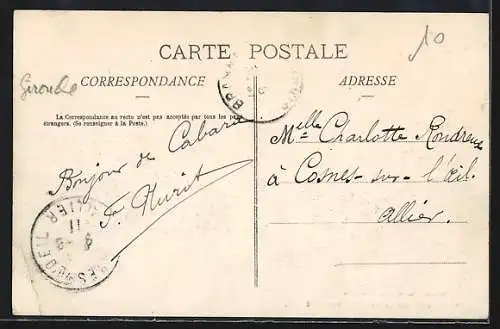 10
CARTE POSTALE
Gironde
CORRESPONDANCE
ADRESSE
La Correspondance au recto n'est pas acceptée par tous les pays
étrangers. (Se renseigner à la Poste).
Bonjour de Cabara
Melle Charlotte
à Cosnes-sur-l'œil
allier.
ALLIER
11